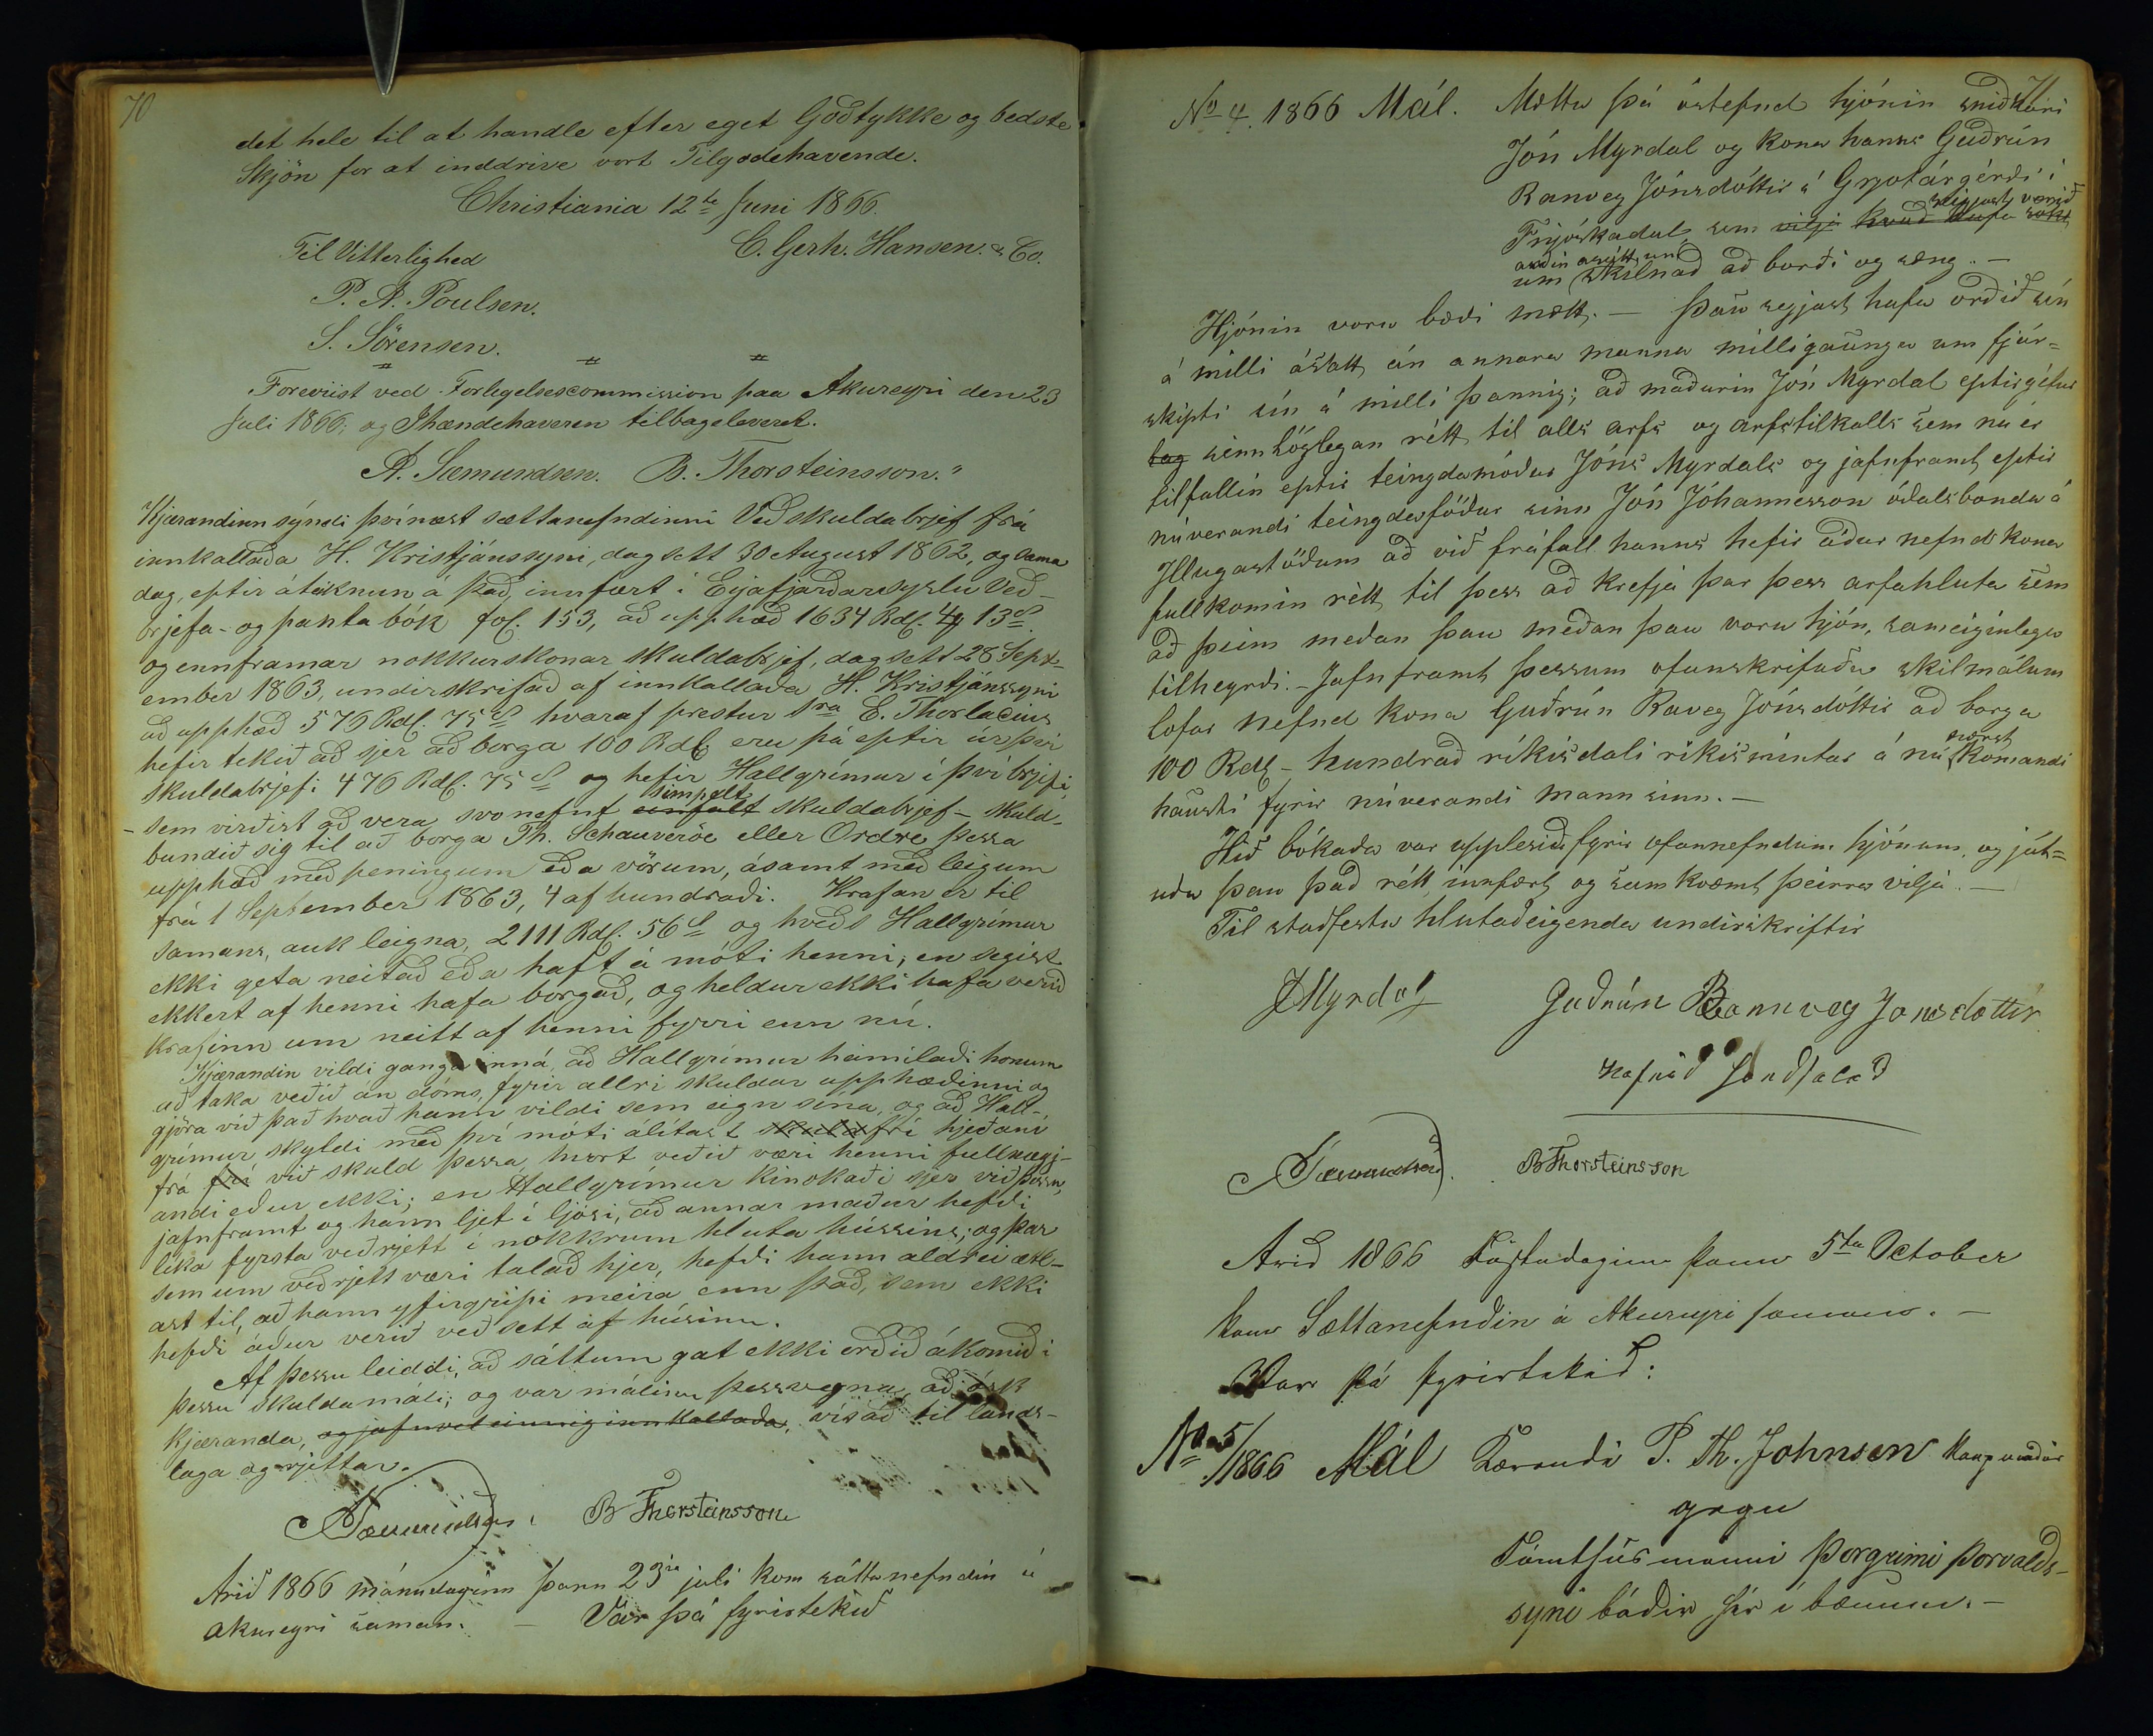 70
det hele til at handle efter eget Godtykke og bedste
Skjön for at inddrive vort Tilgodehavende.
Christiania 12te Juni 1866.
C. Gerh. Hansen & Co.
Til Vitterlighed
P. A. Poulsen.
S. Sörensen.
Foreviist ved Forligelsescommission paa Akureyri den 23
Juli 1866; og Ihændehaveren tilbageleveret.
A. Sæmundsen. B. Thorsteinsson."
Kjærandinn sýndi þvínæst sættanefndinni Veðskuldabrjef frá
innkallaða H. Kristjánssyni, dagsett 30 August 1862, og sama
dag, eptir áteiknun á það, innfært í Eyjafjarðarsýslu Veð-
brjefa- og panta bók fol. 153, að upphæð 1634 Rdl. 4 13 s
og ennframar nokkurskonar skuldabrjef, dagsett 28 Sept-
ember 1863, undirskrifað af innkallaða H. Kristjánssyni
að upphæð 576 Rdl. 75 s hvaraf prestur sra E. Thorlacius
hefir tekið að sjer að borga 100 Rdl. eru þá eptir úr því
skuldabrjefi 476 Rdl. 75 s og hefir Hallgrímur í því brjefi,
simpelt
- sem virðist að vera svonefnt einfalt skuldabrjef - skuld-
bundið sig til að borga Th. Schauveröe eller Ordre þessa
upphæð með peningum eða vörum, ásamt með leigum
frá 1 September 1863, 4 af hundraði. Krafan er til
samans, auk leigna, 2111 Rdl. 56 s og hveðs Hallgrímur
ekki geta neitað eða haft á móti henni; en segist
ekkert af henni hafa borgað, og heldur ekki hafa verið
krafinn um neitt af henni fyrri enn nú.
Kjærandin vildi ganga inná, að Hallgrímur heimilaði honum
að taka veðið án dóms, fyrir allri skuldar upphæðinni og
gjöra við það hvað hann vildi sem eign sína, og að Hall-
grímur skyldi með því móti álítast skuldfrí hjeðaní
frá frí við skuld þessa, hvort veðið væri henni fullnægj-
andi eður ekki; en Hallgrímur kinokaði sjer við þessu,
jafnframt og hann ljet í ljósi, að annar maður hefði
líka fyrsta veðrjett í nokkrum hluta hússins; og þar
sem um veðrjett væri talað hjer, hefði hann aldrei ætl-
ast til, að hann yfirgripi meira enn það, sem ekki
hefði áður verið veðsett af húsinu.
Af þessu leiddi, að sáttum gat ekki orðið ákomið í
þessu skuldamáli; og var málinu þessvegna, að ósk
kjæranda, og jafnvel einnig innkallaða, vísað til lands-
laga og rjettar.
ASæmundsen. B Thorsteinsson
Árið 1866 mánudaginn þann 23ia juli kom sáttanefndin á
akureyri saman. - Var þá fyristekið
No 4. 1866 Mál. Mættu þá óstefnd hjónin sniðkari
Jón Myrdal og kona hanns Guðrún
Ranveg Jónsdóttir á Grjotárgérði í
segjast verið
Fnjóskadal, sem vilja hvað hafa
um skilnað að borði og sæng. -
Hjónin voru bæði mætt. - Þau segjast hafa orðið sín
á milli ásátt án annara manna milligaúnga um fjár-
skipti sín á milli þannig; að maðurin Jón Myrdal eptirgéfur
sinn löglegan rétt til alls arfs og arfstilkalls sem nú er
tilfallin eptir teingdamóður Jóns Myrdals og jafnframt eptir
núverandi teingdaföður sinn Jón Jóhannesson óðalsbonda á
Illugastöðum að við fráfall hanns hefir áður nefnd kona
fullkomin rétt til þess að krefja þar þess arfahluta sem
að þeim meðan þau meðan þau voru hjón, sameiginlegur
tilheyrði. - Jafnframt þessum ofanskrifuðu skilmálum
lofar nefnd kona Guðrún Raveg Jónsdóttir að borga
næst
100 Rdl - hundrað ríkisdali ríkismíntar á nú komandi
haústi fyrir núverandi mann sinn. -
Hið bókaða var upplesið fyrir ofannefndum hjónum, og ját-
uðu þau það rétt innfært og samkvæmt þeirra vilja. -
Til staðfestu hlutaðeigenda undirskriftir
JMyrdal Guðrún Rannveg Jonsdottir
handsalað
ASæmundsen. BThorsteinsson
Arið 1866 Föstudaginn þann 5ta October
kom Sættanefndin á Akureyri samans. -
Var þá fyrirtekið:
No 5/1866 Mál Kærandi P. Th. Johnsen Kaupmaður
gegn
Tómthúsmanni Þorgrimi Þorvalds-
syni báðir hér í bænum. -